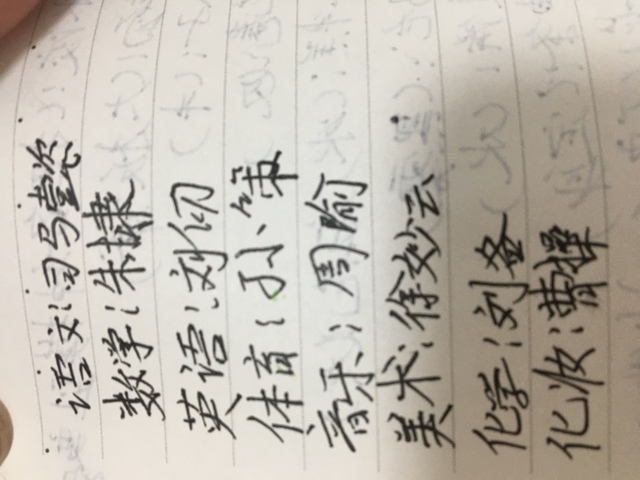 语文:司马懿
数学:朱棣
英语:刘彻
体育:孙策
音乐:周瑜
美术:徐妙云
化学:刘备
化妆:曹操